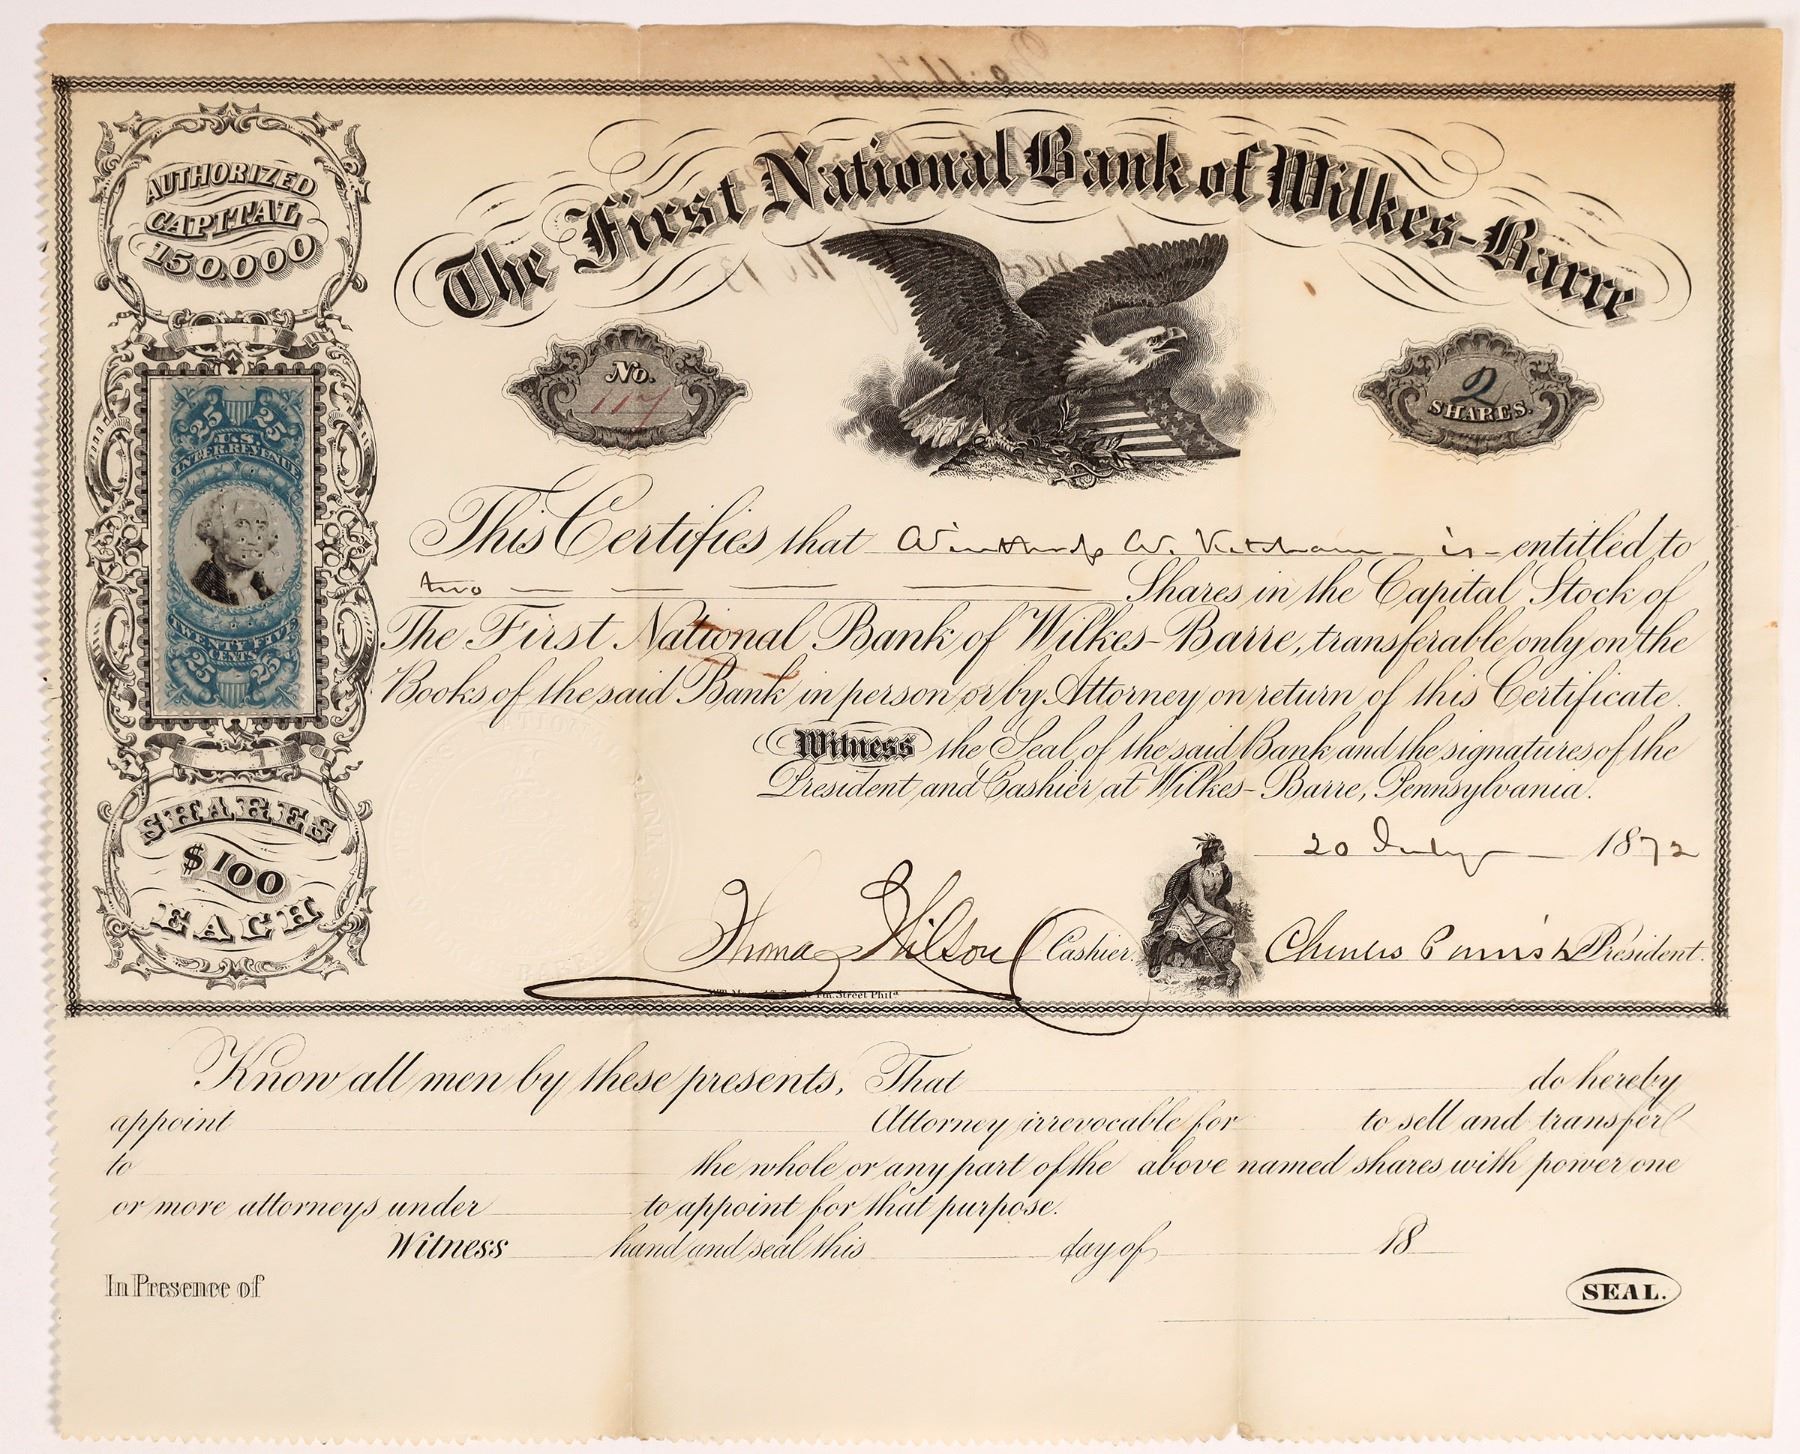 AUTHORIZED
CAPITAL
150,000
The First National Bank of Wilkes-Barre
No.
117
2
SHARES.
25 25
U.S.
INTER. REVENUE
TWENTY FIVE
CENTS
25 25
This Certifies that Winthrop W. Ketcham is entitled to
two Shares in the Capital Stock of
The First National Bank of Wilkes-Barre, transferable only on the
Books of the said Bank in person or by Attorney on return of this Certificate.
Witness the Seal of the said Bank and the signatures of the
President and Cashier at Wilkes-Barre, Pennsylvania.
20 July 1872
SHARES
$100
EACH
Thomas Wilson Cashier.
Charles Parrish President.
Street Phila
Know all men by these presents, That do hereby
appoint Attorney irrevocable for to sell and transfer
to the whole or any part of the above named shares with power one
or more attorneys under to appoint for that purpose.
Witness hand and seal this day of 18
In Presence of
SEAL.